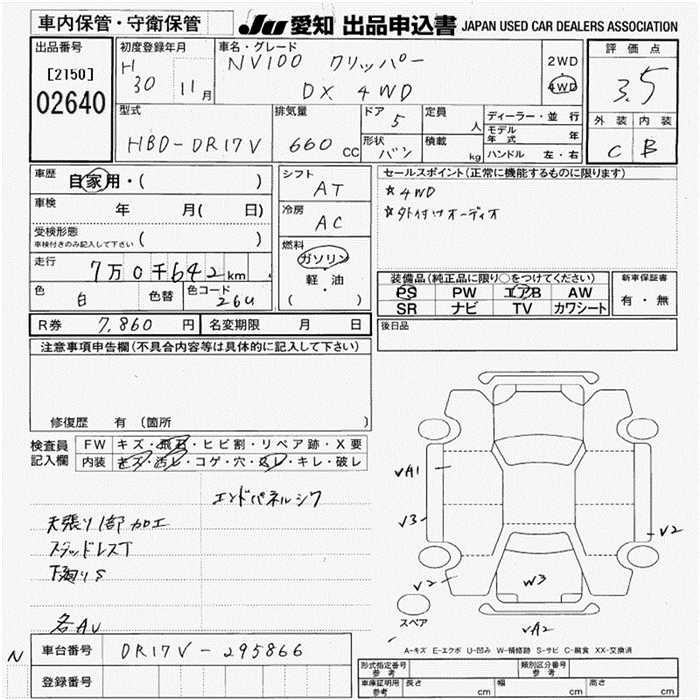 車内保管・守衛保管
JU 愛知 出品申込書 JAPAN USED CAR DEALERS ASSOCIATION
出品番号
[2150]
02640
初度登録年月
H 30 11月
車名・グレード
NV100 クリッパー
DX 4WD
2WD
4WD
評価点
3.5
外装 内装
C B
型式
HBD-DR17V
排気量
660 CC
ドア 5
形状 バン
定員 人
積載 kg
ディーラー・並行
モデル年式 年
ハンドル 左・右
車歴 自家用・( )
車検 年 月( 日)
受検形態
車検付きのみ記入して下さい ( )
走行 7万0千642km
色 白 色替 色コード 26U
シフト AT
冷房 AC
燃料
ガソリン
軽油
( ・ )
セールスポイント(正常に機能するものに限ります)
☆4WD
☆外付けオーディオ
装備品(純正品に限り○をつけてください)
PS PW エアB AW
SR ナビ TV カワシート
新車保証書
有・無
後日品
R券 7,860円 名変期限 月 日
注意事項申告欄(不具合内容等は具体的に記入して下さい)
修復歴 有(箇所 )
検査員記入欄
FW キズ・飛石・ヒビ割・リペア跡・X要
内装 キズ・汚レ・コゲ・穴・スレ・キレ・破レ
エンドパネルシワ
天張り1部加工
スタッドレスT
下廻りS
各AU
N
車台番号 DR17V-295866
登録番号
VA1
V3
V2
V2
W3
VA2
スペア
A-キズ E-エクボ U-凹み W-補修跡 S-サビ C-腐食 XX-交換済
形式指定番号 参考
類別区分番号 参考
車庫証明用 参考 長さ cm 幅 cm 高さ cm